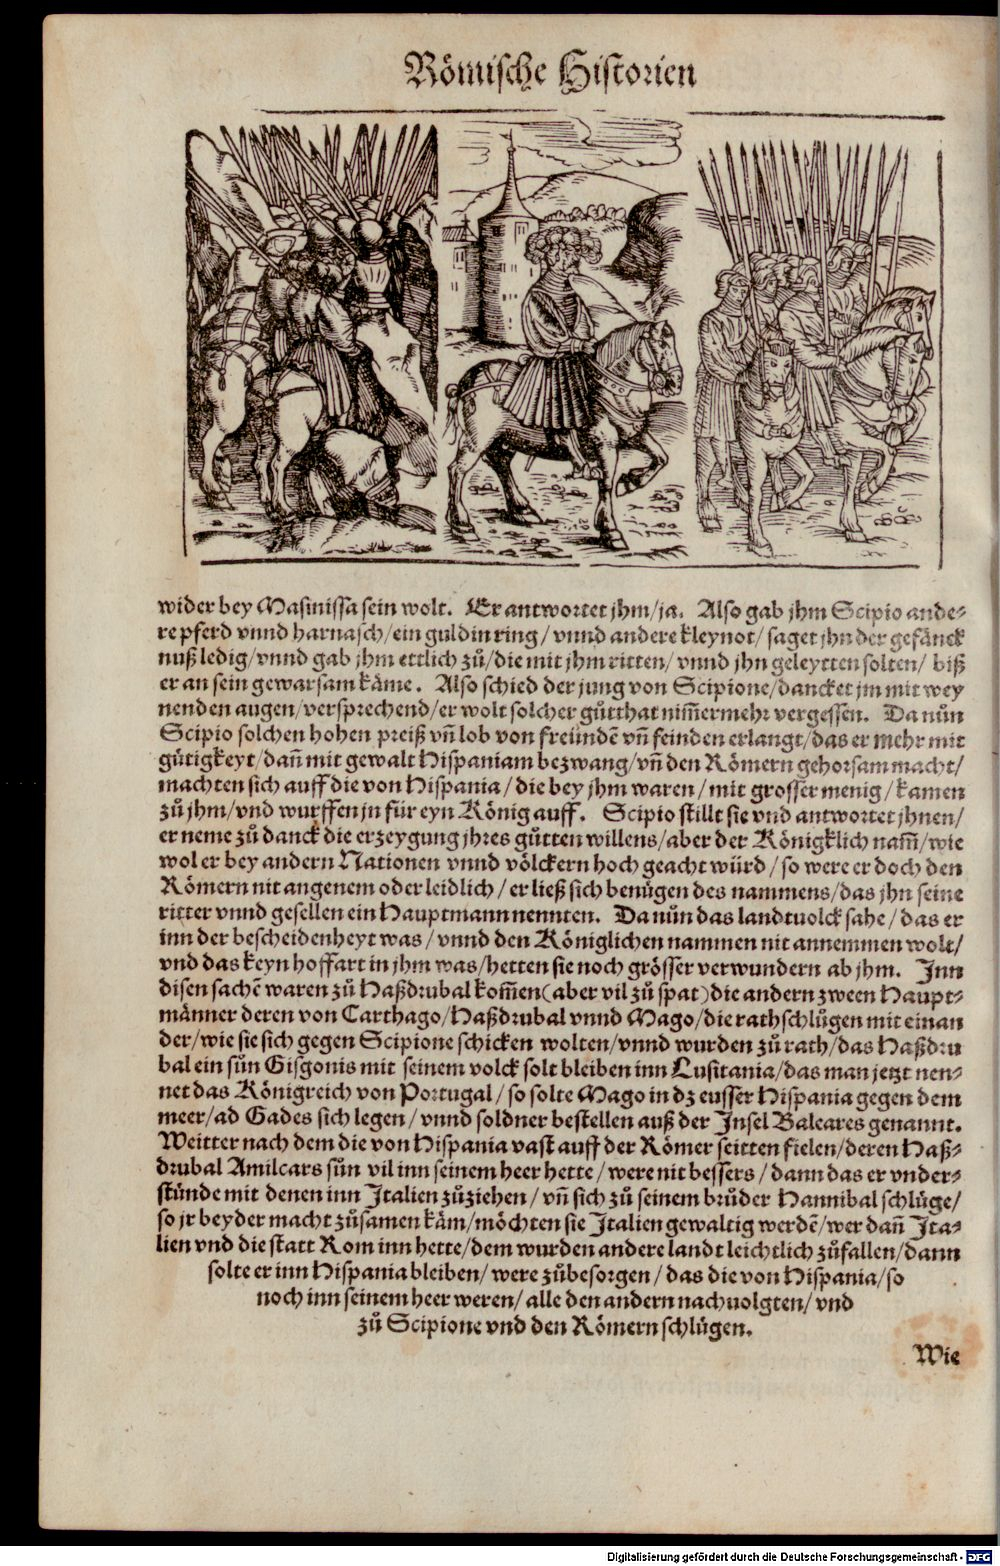 Römische Historien
wider bey Masinissa sein wolt. Er antwortet jhm/ja. Also gab jhm Scipio ande-
re pferd vnnd harnasch/ein guldin ring/vnnd andere kleynot/saget jhn der gefänck
nuß ledig/vnnd gab jhm ettlich zů/die mit jhm ritten/vnnd jhn geleytten solten/biß
er an sein gewarsam käme. Also schied der jung von Scipione/dancket jm mit wey
nenden augen/versprechend/er wolt solcher gůtthat nim̃ermehr vergessen. Da nůn
Scipio solchen hohen preiß vñ lob von freündẽ vñ feinden erlangt/das er mehr mit
gütigkeyt/dañ mit gewalt Hispaniam bezwang/vñ den Römern gehorsam macht/
machten sich auff die von Hispania/die bey jhm waren/mit grosser menig/kamen
zů jhm/vnd wurffen jn für eyn König auff. Scipio stillt sie vnd antwortet jhnen/
er neme zů danck die erzeygung jhres gůtten willens/aber der Königklich nam̃/wie
wol er bey andern Nationen vnnd völckern hoch geacht würd/so were er doch den
Römern nit angenem oder leidlich/er ließ sich benügen des nammens/das jhn seine
ritter vnnd gesellen ein Hauptmann nennten. Da nůn das landtuolck sahe/das er
inn der bescheidenheyt was/vnnd den Königlichen nammen nit annemmen wolt/
vnd das keyn hoffart in jhm was/hetten sie noch grösser verwundern ab jhm. Inn
disen sachẽ waren zů Haßdrubal kom̃en(aber vil zů spat)die andern zween Haupt-
männer deren von Carthago/Haßdrubal vnnd Mago/die rathschlůgen mit einan
der/wie sie sich gegen Scipione schicken wolten/vnnd wurden zů rath/das Haßdru
bal ein sůn Gisgonis mit seinem volck solt bleiben inn Lusitania/das man jetzt nen-
net das Königreich von Portugal/so solte Mago in dz eusser Hispania gegen dem
meer/ad Gades sich legen/vnnd soldner bestellen auß der Insel Baleares genannt.
Weitter nach dem die von Hispania vast auff der Römer seitten fielen/deren Haß-
drubal Amilcars sůn vil inn seinem heer hette/were nit bessers/dann das er vnder-
stünde mit denen inn Italien zůziehen/vñ sich zů seinem brůder Hannibal schlüge/
so jr beyder macht zůsamen käm/möchten sie Italien gewaltig werdẽ/wer dañ Ita-
lien vnd die statt Rom inn hette/dem wurden andere landt leichtlich zůfallen/dann
solte er inn Hispania bleiben/were zůbesorgen/das die von Hispania/so
noch inn seinem heer weren/alle den andern nachuolgten/vnd
zů Scipione vnd den Römern schlügen.
Wie
Digitalisierung gefördert durch die Deutsche Forschungsgemeinschaft - DFG